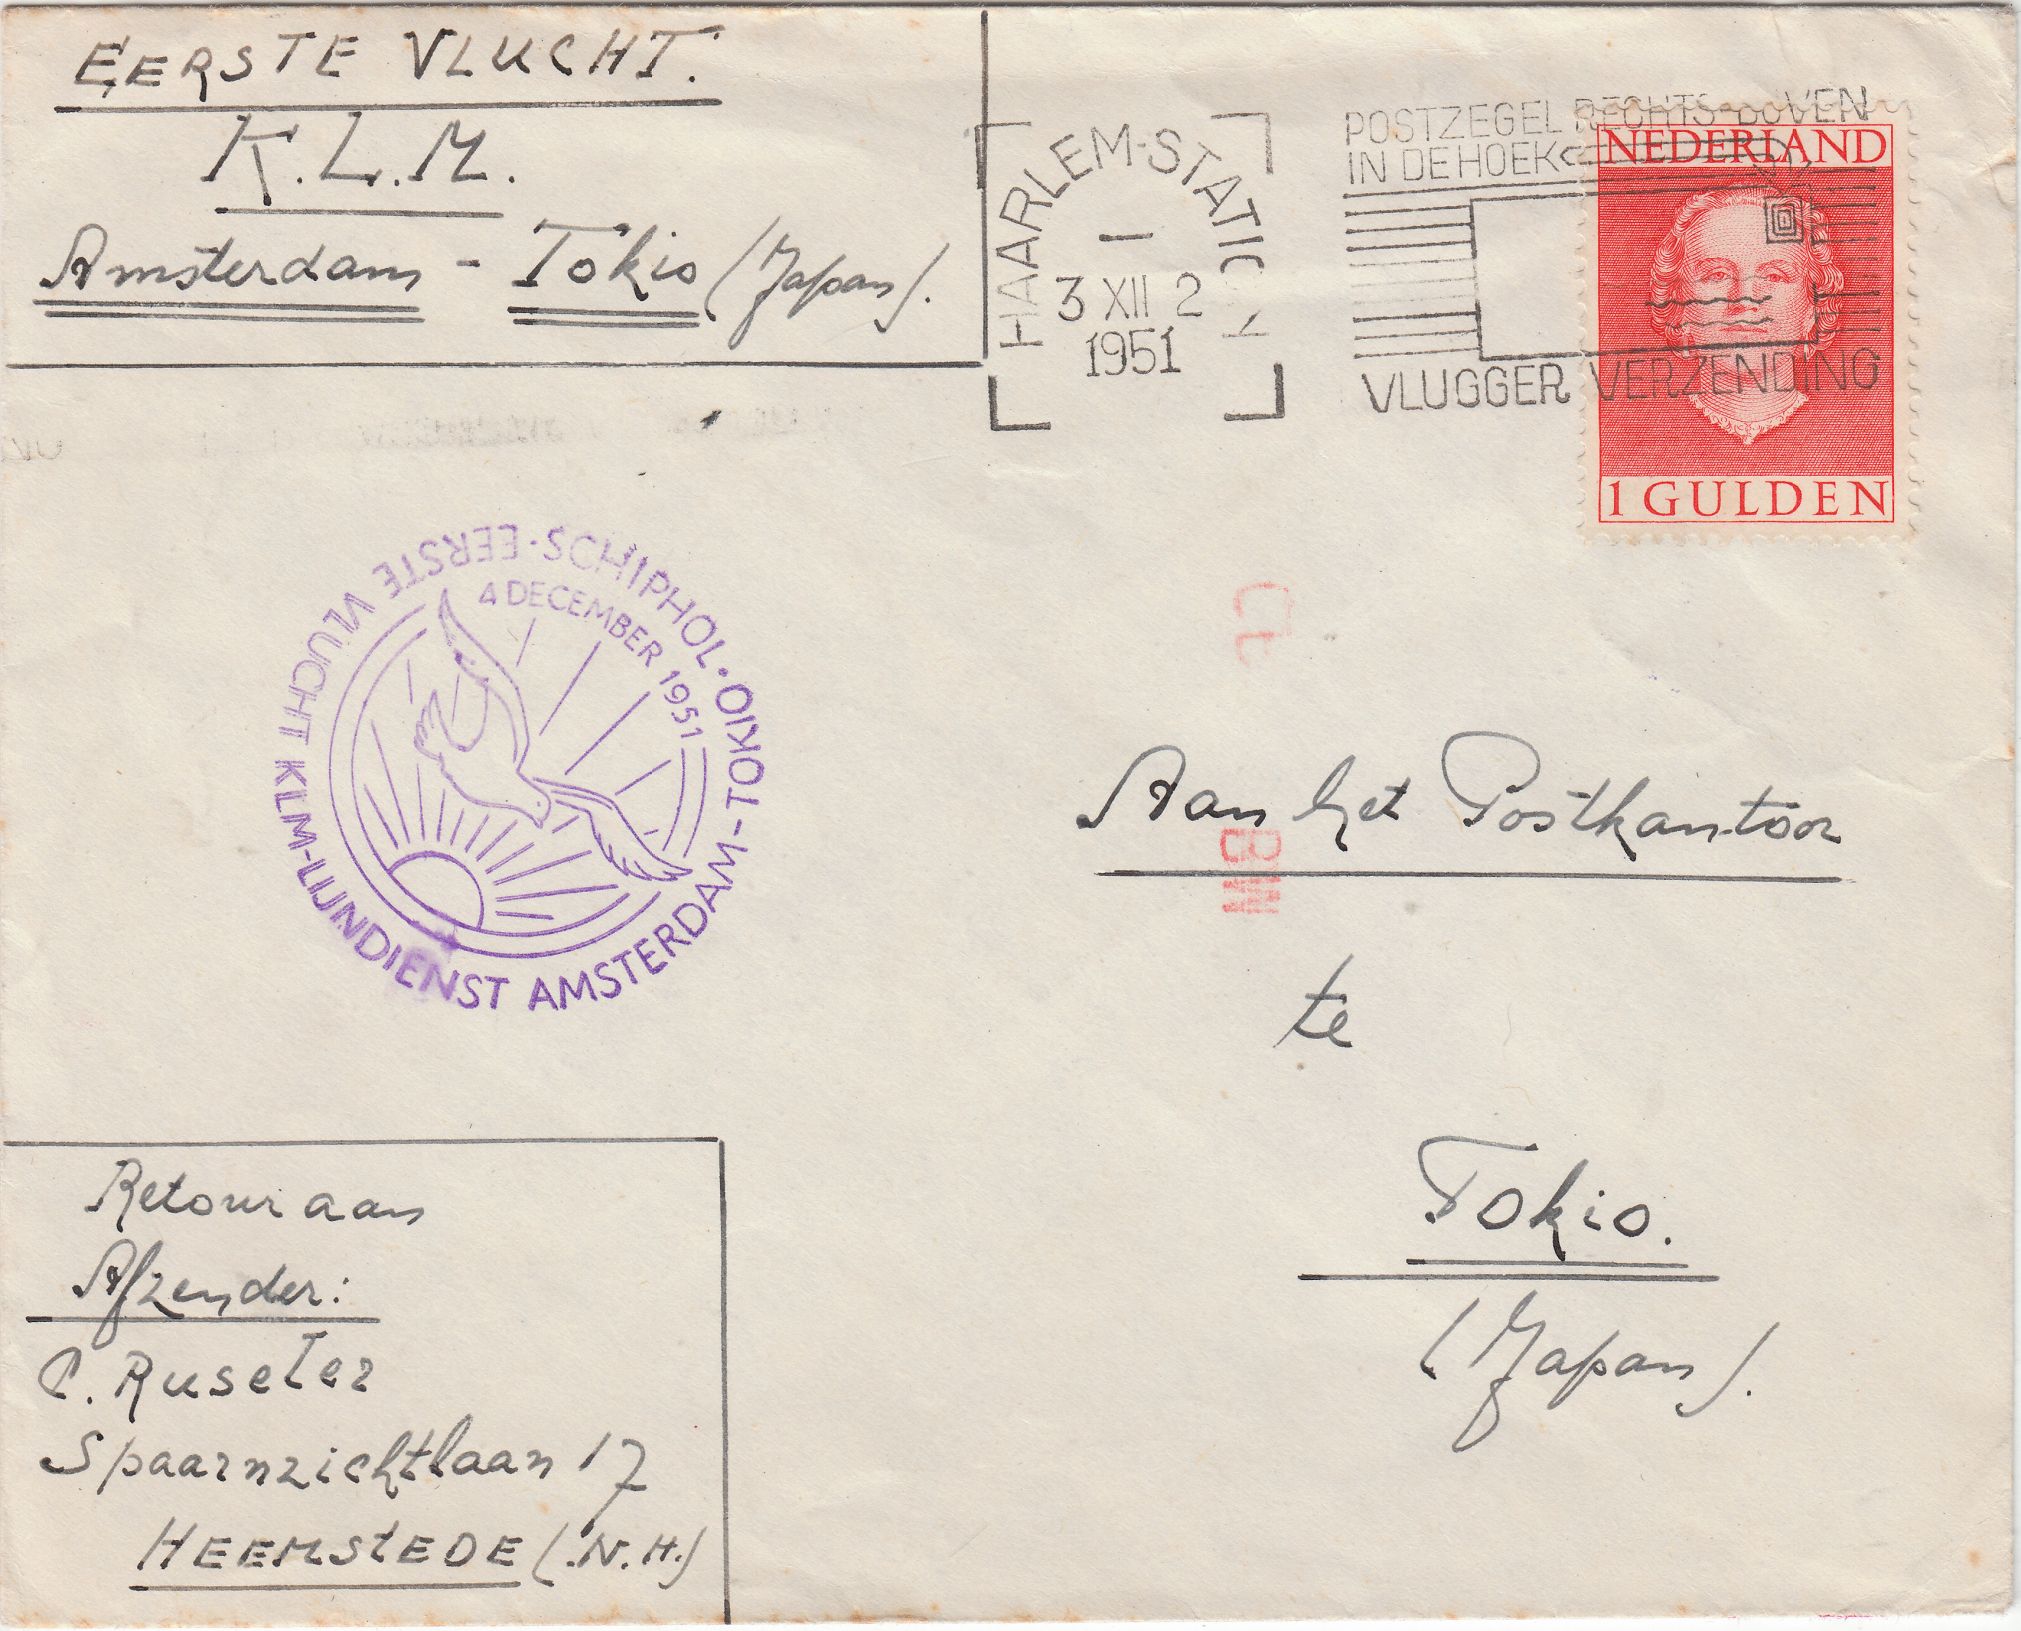 EERSTE VLUCHT.
K.L.M.
Amsterdam - Tokio (Japan).
HAARLEM-STATION
3 XII 2
1951
POSTZEGEL RECHTS-BOVEN
IN DE HOEK
VLUGGER VERZENDING
NEDERLAND
1 GULDEN
SCHIPHOL·TOKIO·
EERSTE VLUCHT KLM-LIJNDIENST AMSTERDAM-TOKIO
4 DECEMBER 1951
Aan het Postkantoor
te
Tokio.
(Japan).
Retour aan
Afzender:
C. Ruseler
Spaarnzichtlaan 17
HEEMSTEDE (N.H.)